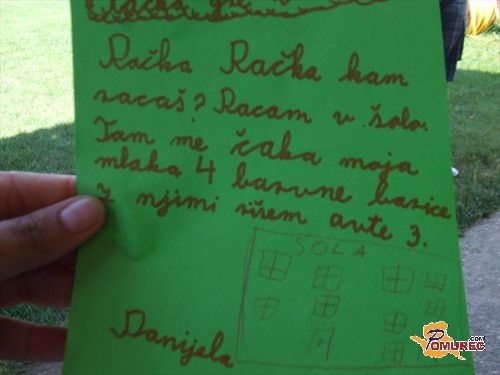 Račka Račka kam
racaš? Racam v šolo.
Tam me čaka moja
mlaka 4 barvne barice
Z njimi rišem avte 3.
ŠOLA
Danijela
POMUREC.COM